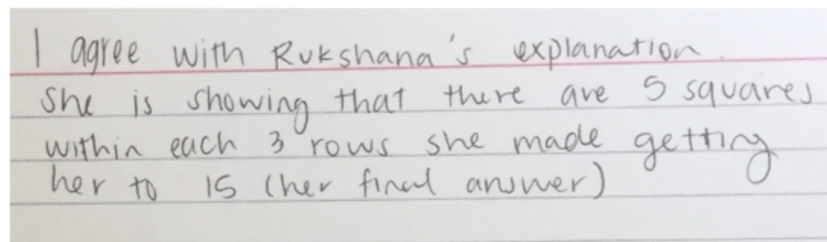 I agree with Rukshana's explanation.
She is showing that there are 5 squares
within each 3 rows she made getting
her to 15 (her final answer)